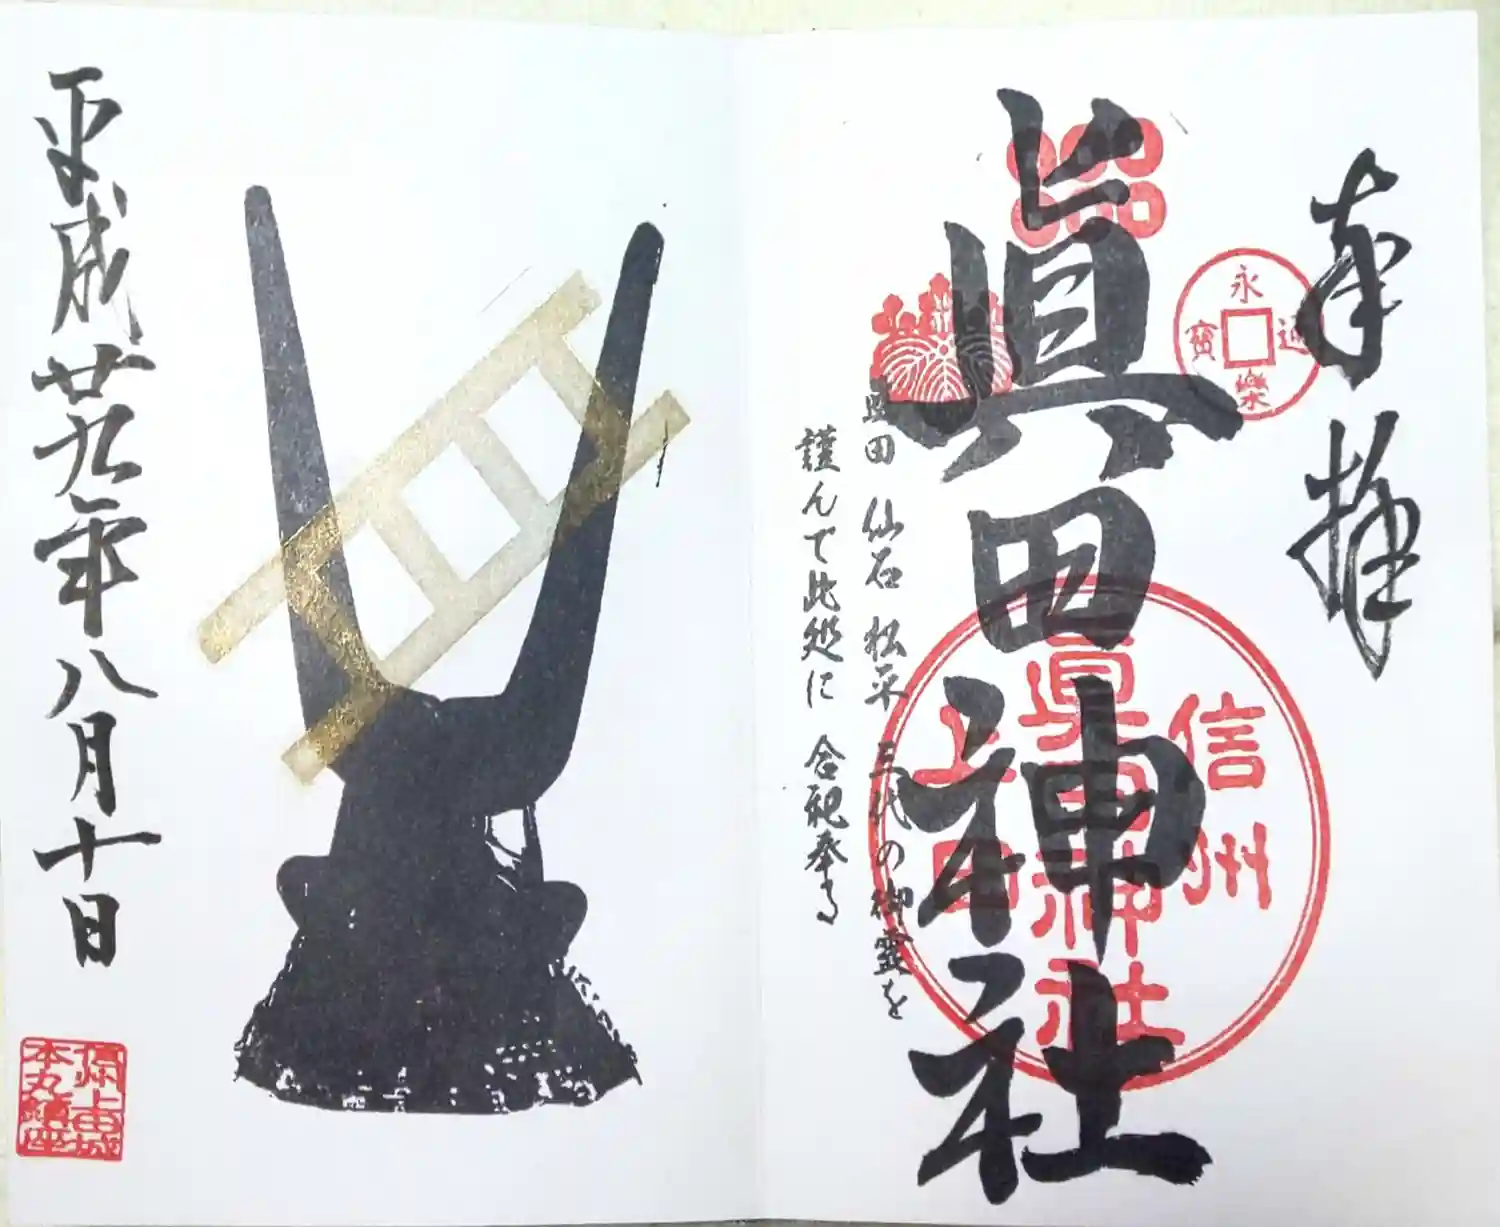 奉拝
永樂通寳
眞田神社
信州
眞田神社
上田
眞田 仙石 松平 三代の御霊を
謹んで此処に 合祀奉る
平成廿九年八月十日
信州上田城
本丸鎮座